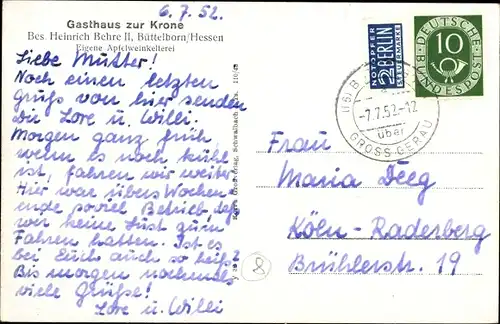 6.7.52.
Gasthaus zur Krone
Bes. Heinrich Behre II, Büttelborn/Hessen
Eigene Apfelweinkelterei
Liebe Mutter!
Noch einen letzten
Gruß von hier senden
Dir Lore u. Willi.
Morgen ganz früh
wenn es noch kühl
ist, fahren wir weiter.
Hier war übers Wochen
ende soviel Betrieb, daß
wir keine Lust zum
Fahren hatten. Ist es
bei Euch auch so heiß?
Bis morgen nochmals
viele Grüße!
Lore u. Willi
NOTOPFER
2 BERLIN
STEUERMARKE
DEUTSCHE
BUNDESPOST
10
-7.7.52.-12
über
GROSS GERAU
Frau
Maria Deeg
Köln-Raderberg
Brühlerstr. 19
8